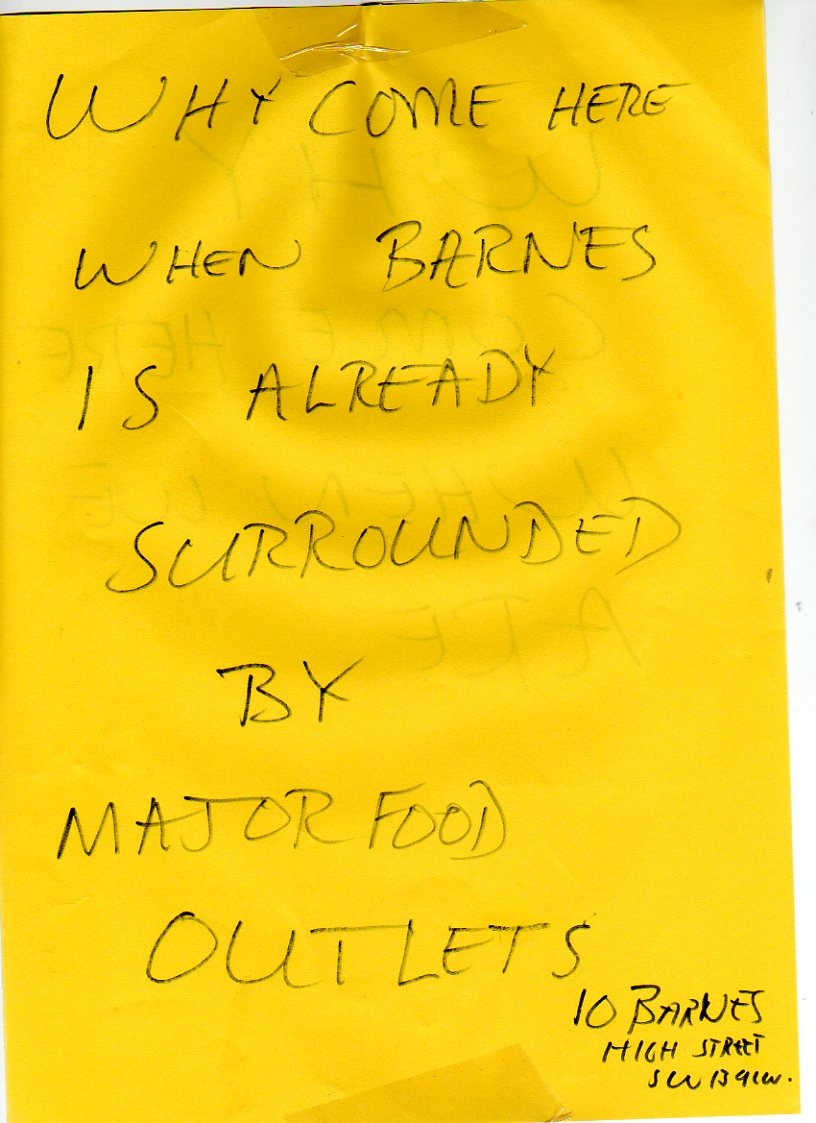 WHY COME HERE
WHEN BARNES
IS ALREADY
SURROUNDED
BY
MAJOR FOOD
OUTLETS
10 BARNES
HIGH STREET
SW13 9LW.
WHY
COME HERE
WHEN WE
ARE